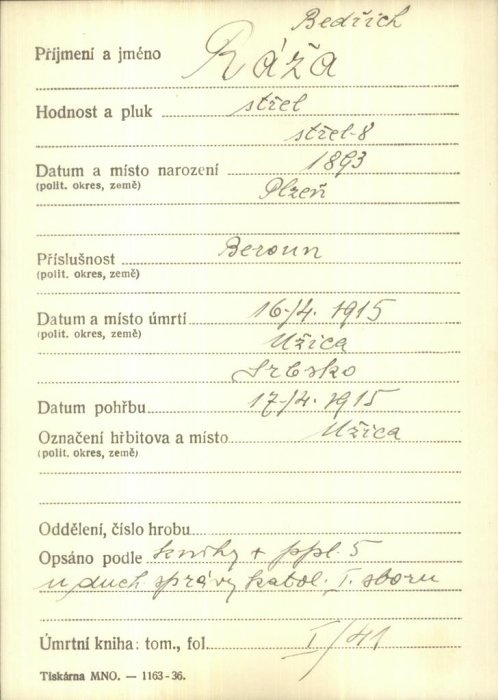 Bedřich
Příjmení a jméno Ráža
Hodnost a pluk střel
střel-8
Datum a místo narození 1893
(polit. okres, země) Plzeň
Příslušnost Beroun
(polit. okres, země)
Datum a místo úmrtí 16/4. 1915
(polit. okres, země) Užica
Srbsko
Datum pohřbu 17/4. 1915
Označení hřbitova a místo Užica
(polit. okres, země)
Oddělení, číslo hrobu
Opsáno podle knihy + ppl. 5
u duch správy katol. I. sboru
Úmrtní kniha: tom., fol. I/41
Tiskárna MNO. — 1163-36.